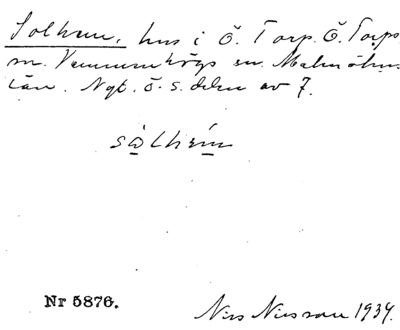 Solhem, hus i Ö. Torp. Ö. Torps
sn. Vemmenhögs hd. Malmöhus
län. Ngt. ö. s. delen av 7.
sålheím
Nr 5876.
Nils Nilsson 1934.